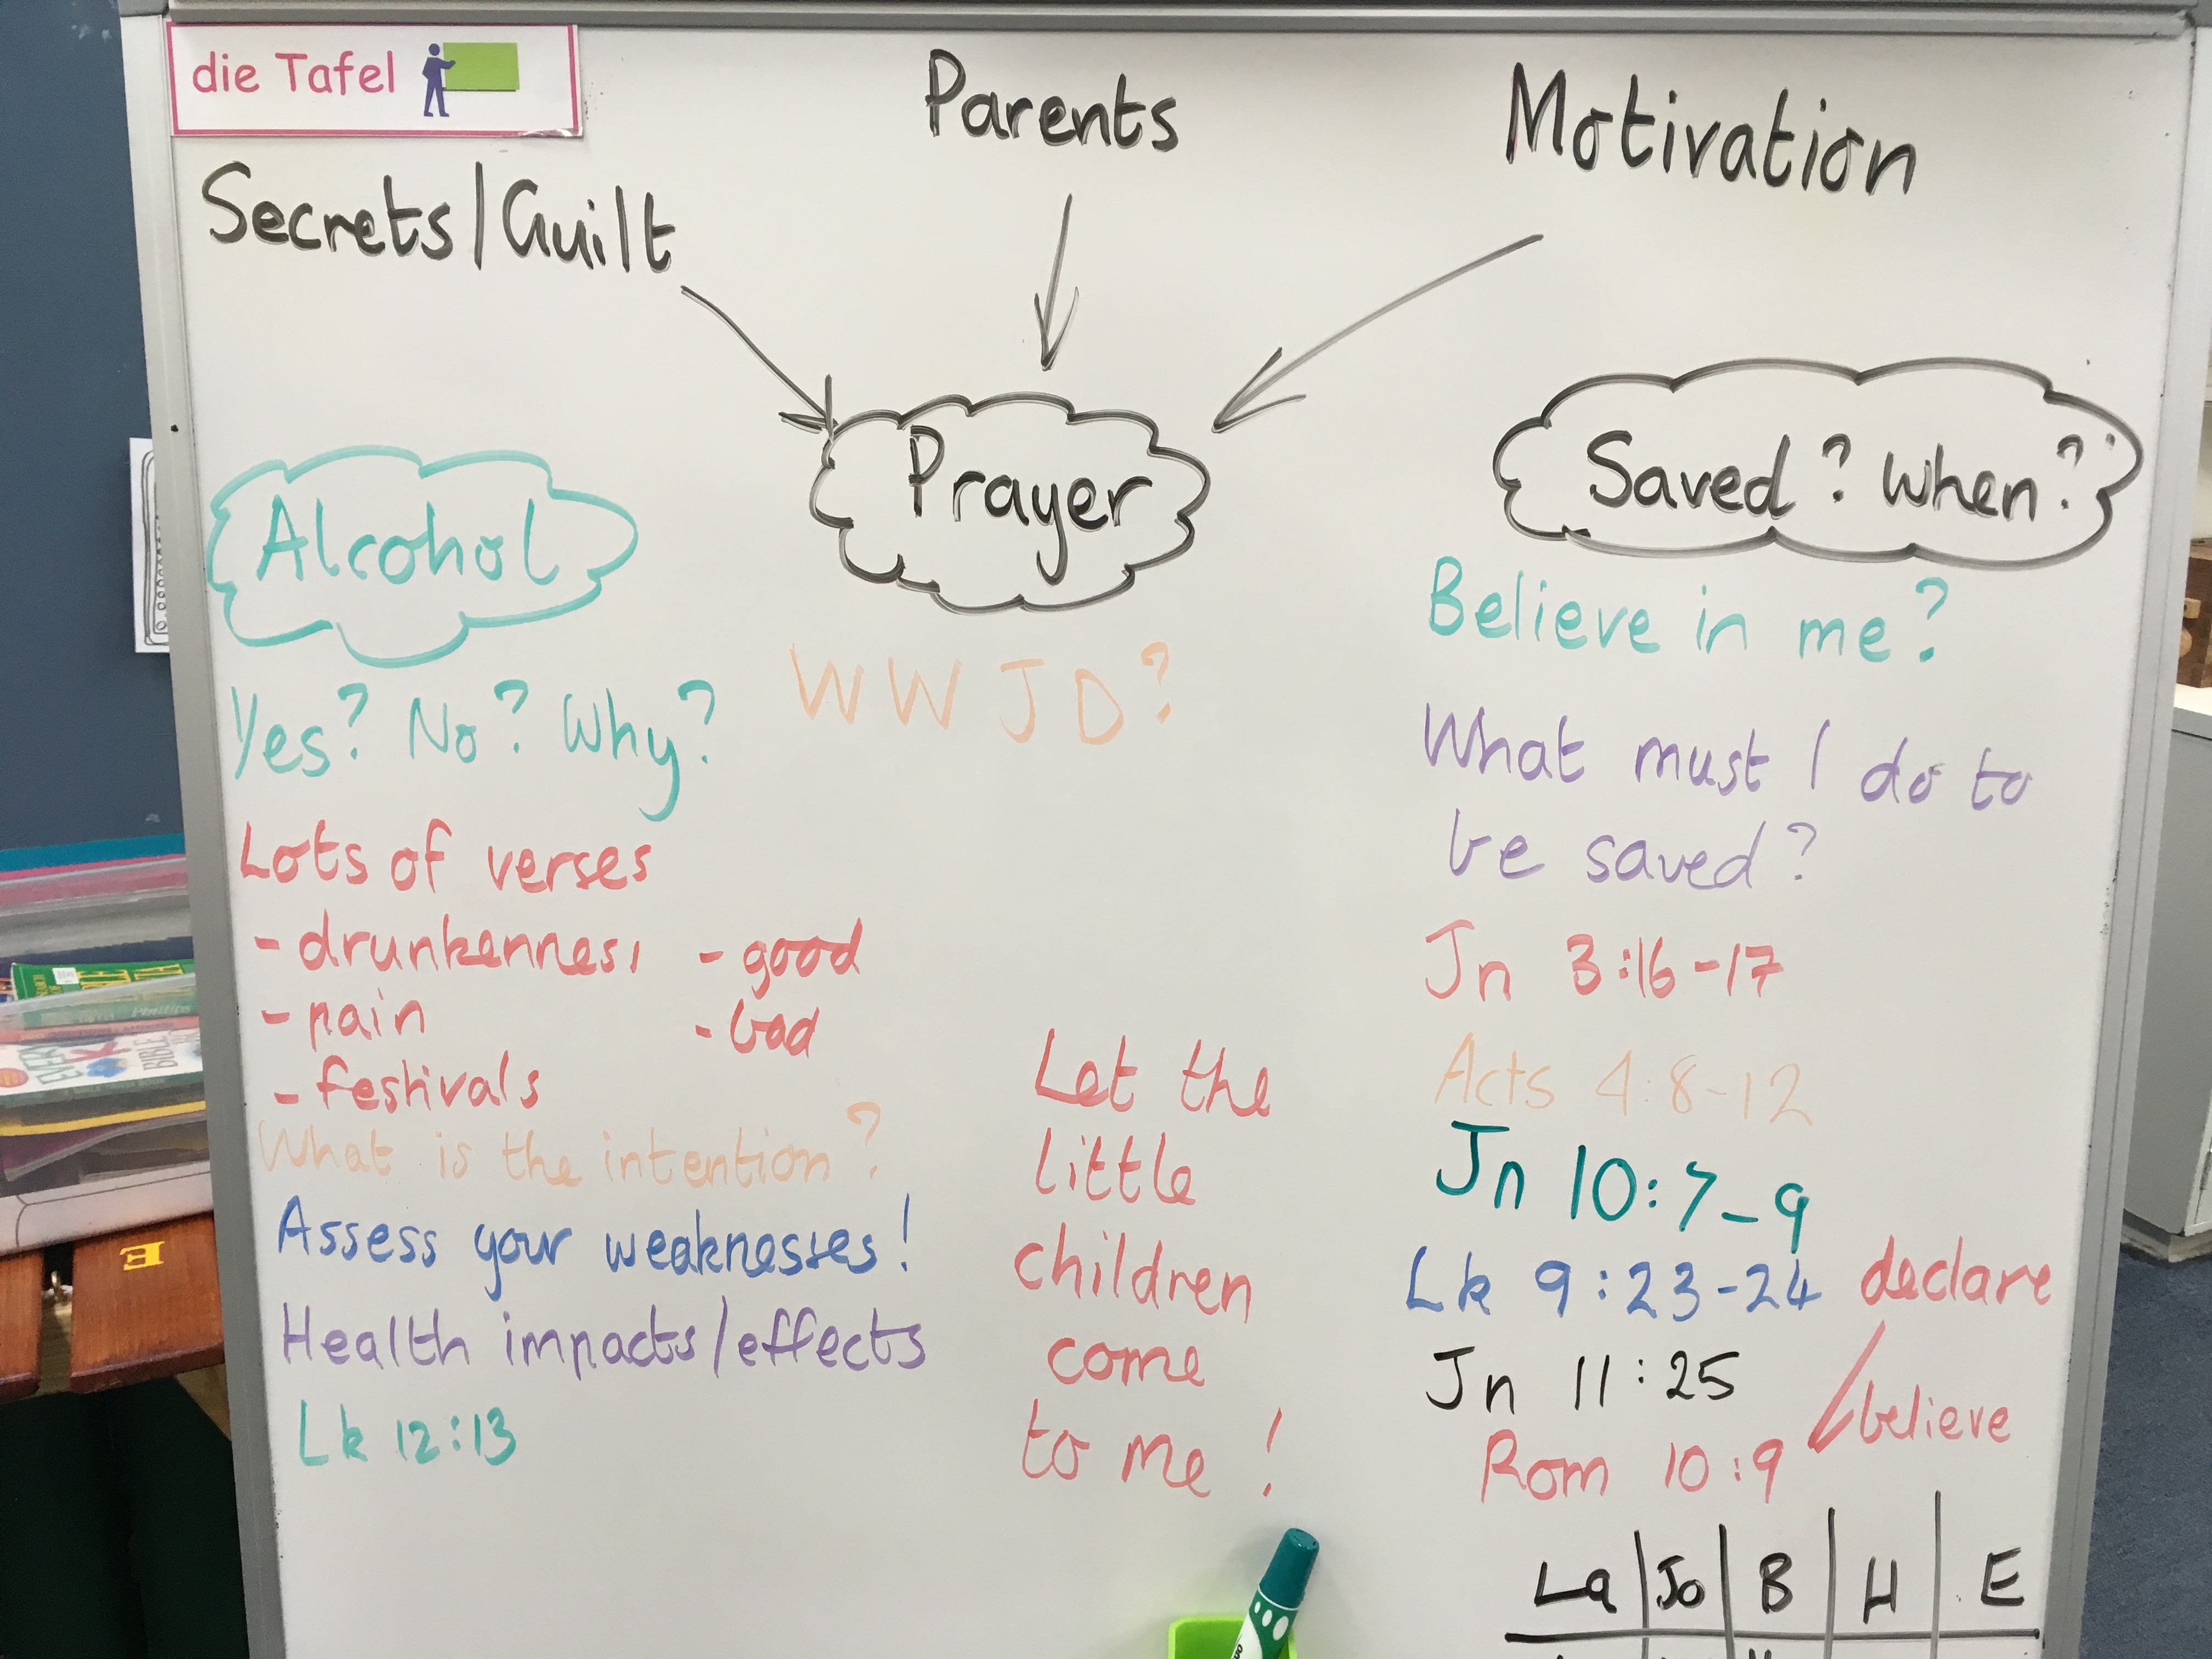 die Tafel
Parents
Motivation
Secrets/Guilt
Prayer
Saved? When?
Alcohol
Believe in me?
WWJD?
Yes? No? Why?
What must I do to
be saved?
Lots of verses
- drunkenness - good
- pain - bad
- festivals
What is the intention?
Assess your weaknesses!
Health impacts/effects
Lk 12:13
Let the
little
children
come
to me!
Jn 3:16-17
Acts 4:8-12
Jn 10:7-9
Lk 9:23-24 declare
Jn 11:25
believe
Rom 10:9
La Jo B H E
E
EVERY
BIBLE
Phillips